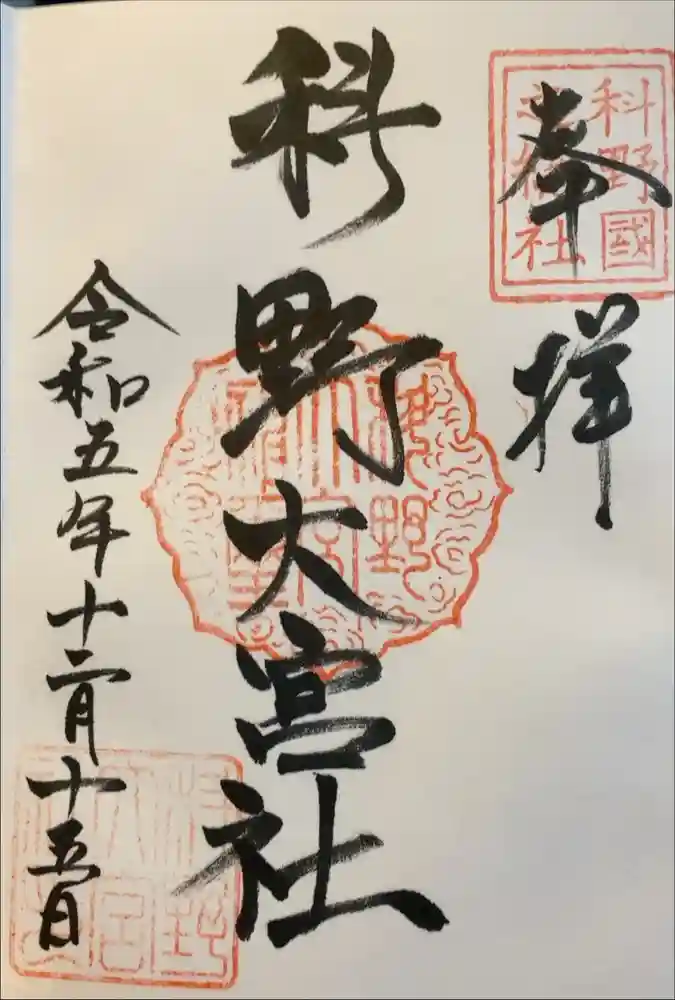 奉拝
科野國
総社
科野大宮社
令和五年十二月十五日